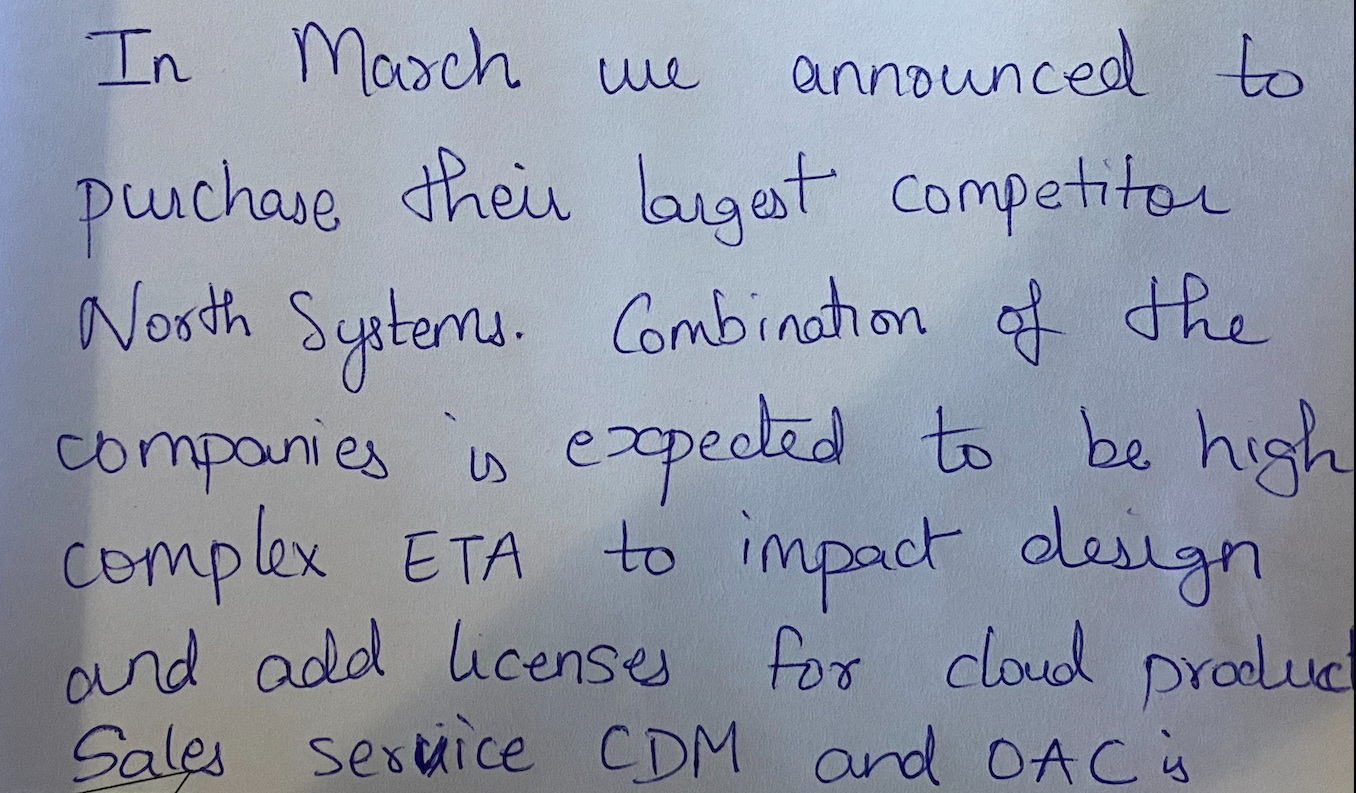 In March we announced to
purchase their largest competitor
North Systems. Combination of the
companies is expected to be high
complex ETA to impact design
and add licenses for cloud product
Sales service CDM and OAC is